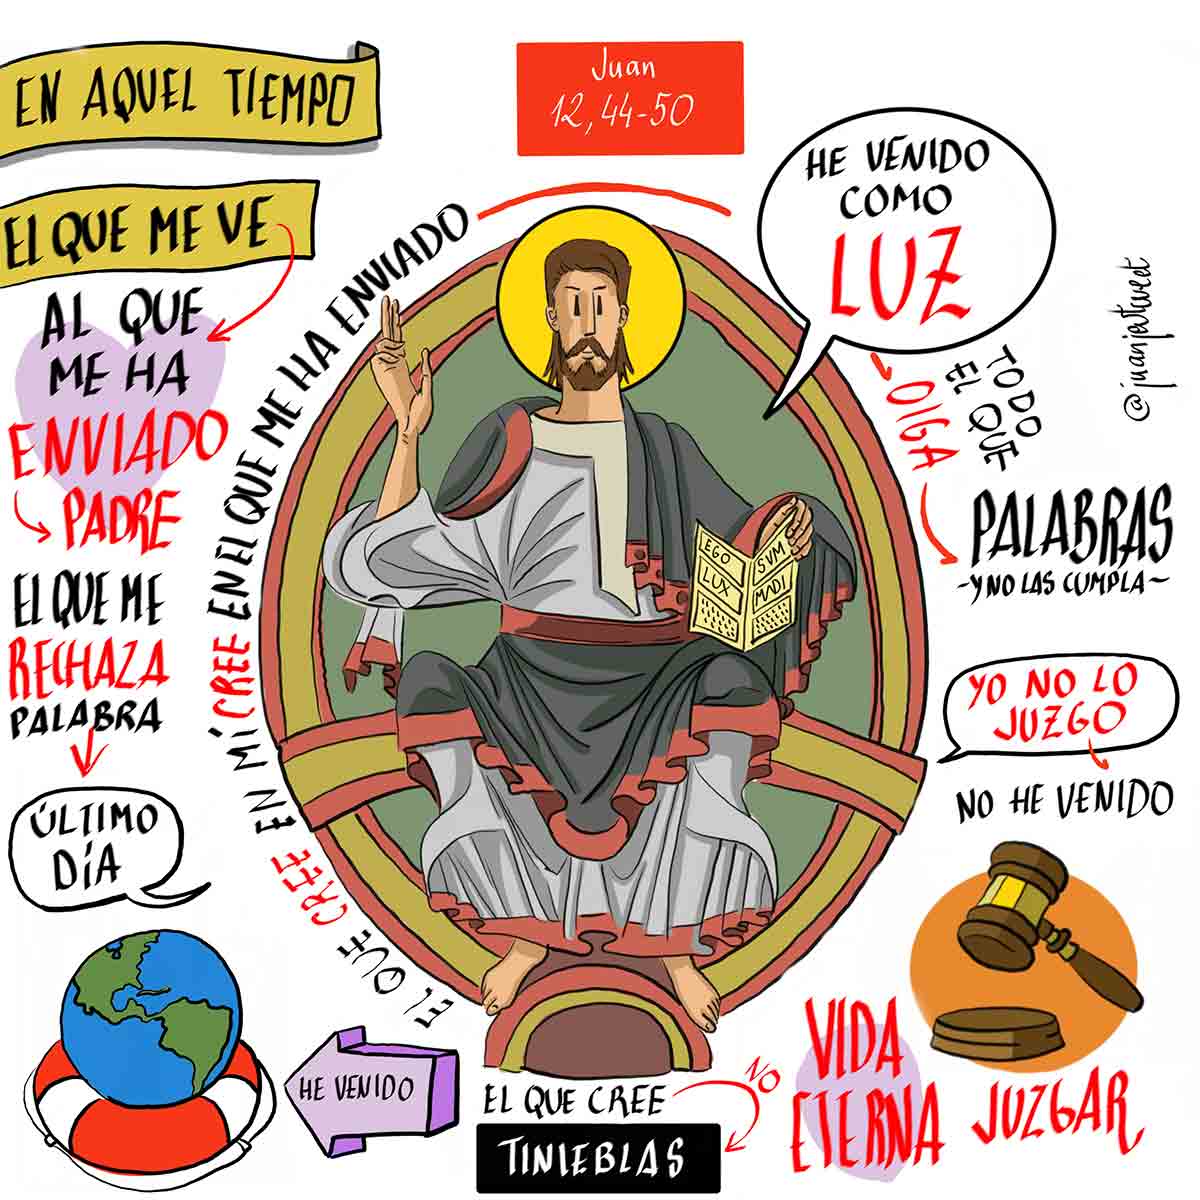 EN AQUEL TIEMPO
Juan
12, 44-50
EL QUE ME VE
AL QUE
ME HA
ENVIADO
PADRE
EL QUE ME
RECHAZA
PALABRA
ÚLTIMO
DÍA
EL QUE CREE EN MÍ CREE EN EL QUE ME HA ENVIADO
HE VENIDO
COMO
LUZ
@juanjatweet
OIGA
TODO
EL QUE
PALABRAS
~Y NO LAS CUMPLA~
EGO SUM
LUX MNDI
YO NO LO
JUZGO
NO HE VENIDO
JUZGAR
VIDA
ETERNA
HE VENIDO
EL QUE CREE
NO
TINIEBLAS